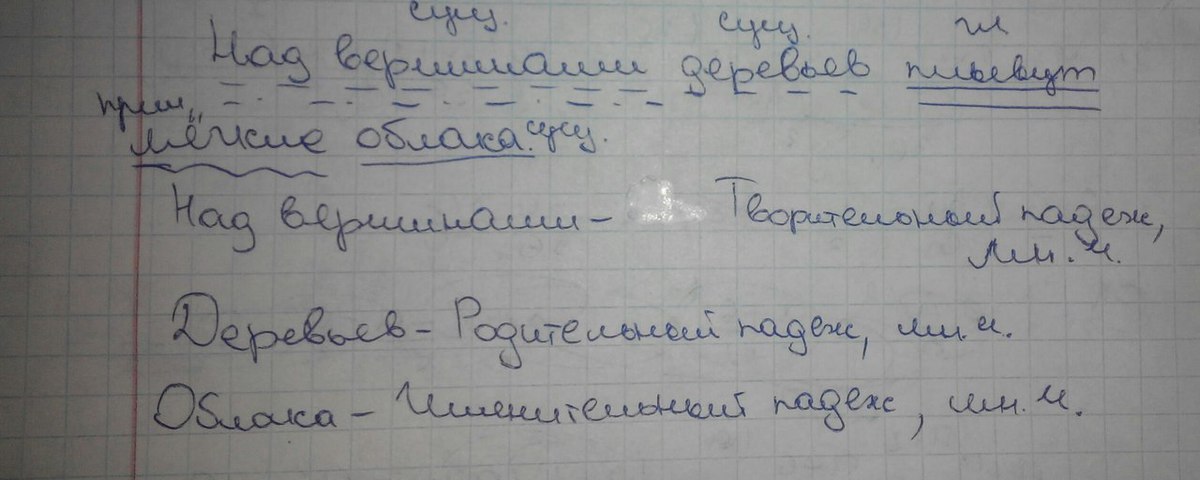 сущ. сущ. гл
Над вершинами деревьев плывут
прил.
мягкие облака. сущ.
Над вершинами - Творительный падеж,
мн. ч.
Деревьев - Родительный падеж, мн. ч.
Облака - Именительный падеж, мн. ч.